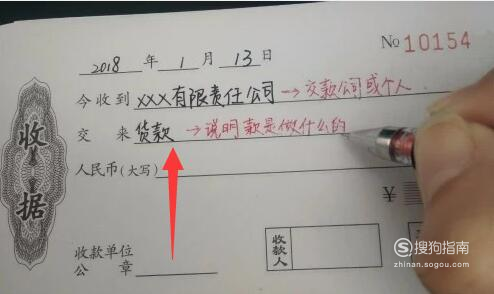 2018 年 1 月 13 日 No 10154
今收到 XXX有限责任公司 →交款公司或个人
交 来 货款 →说明款是做什么的
人民币(大写) ¥
收据
收款单位
公 章
收款人
搜狗指南
zhinan.sogou.com